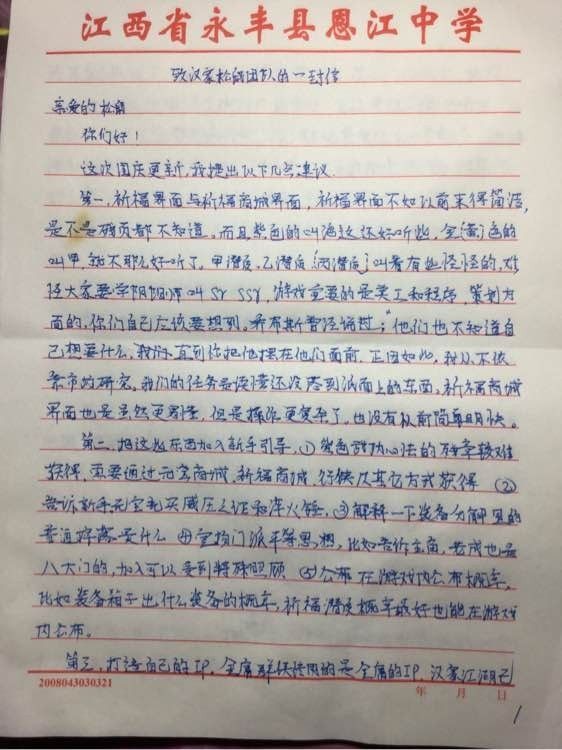 江西省永丰县恩江中学
致汉家松鼠团队的一封信
亲爱的松鼠
你们好！
这次国庆更新，我提出以下几点建议
第一，祈福界面与祈福商城界面，祈福界面不如以前来得简洁，
是不是碎页都不知道。而且紫色的叫绝这还好听些，金(黄)色的
叫甲，就不那么好听了。甲潜质，乙潜质，丙潜质，叫着有些怪怪的，难
怪大家要学阴阳师叫SR SSR，游戏重要的是美工和程序，策划方
面的，你们自己应该要想到。乔布斯曾经说过；"他们也不知道自
己想要什么，我们直到你把他摆在他们面前，正因如此，我从不依
靠市场研究，我们的任务是读懂还没落到纸面上的东西，祈福商城
界面也是虽然更易懂，但是操作更复杂了，也没有从前简单明快。
第二，把这些东西加入新手引导，①紫色武功心法的残章较难
获得，要通过元宝商城，祈福商城，行侠及其它方式获得 ②
告诉新手元宝先买藏 ③解释一下装备分解里的
普通 是什么 ④宣扬门派平等思想，比如告诉主角，
八大门的，加入可以受到特殊照顾 ⑤公布在游戏内公布概率，
比如装备箱子出什么装备的概率，祈福潜质概率最好也能在游戏
内公布。
第三，打造自己的IP，金庸群侠传用的是金庸的IP，汉家江湖已
2008043030321
年 月 日
1